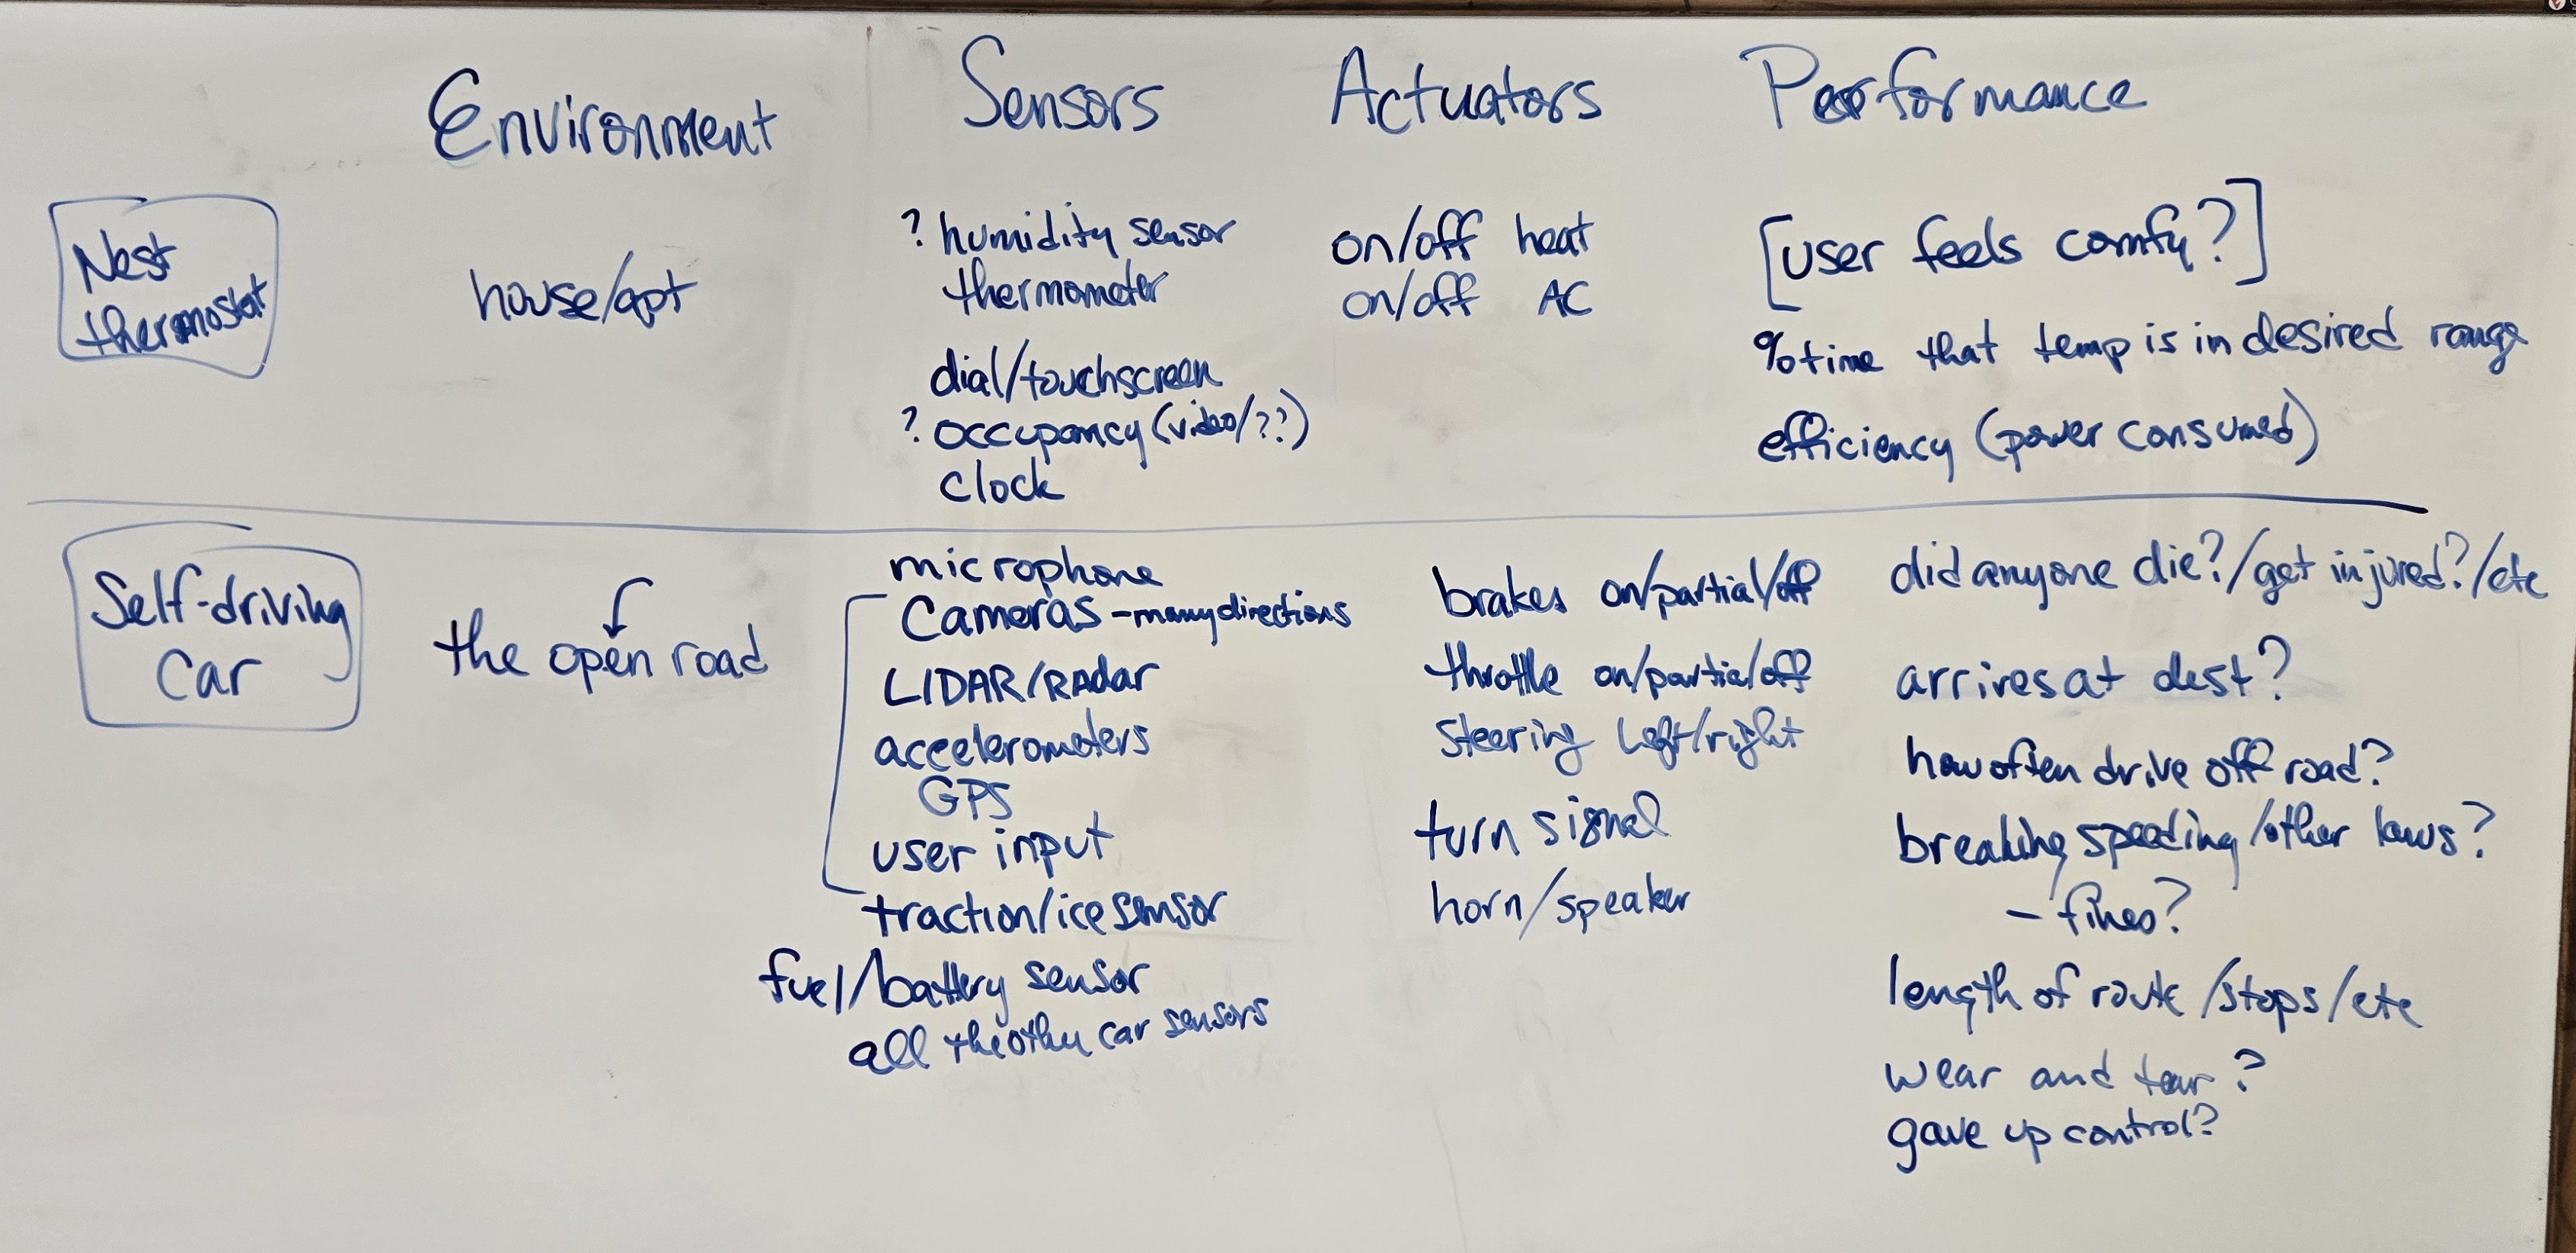 Environment Sensors Actuators Performance
Nest
thermostat
house/apt
? humidity sensor
thermometer
dial/touchscreen
? occupancy (video/??)
clock
on/off heat
on/off AC
[user feels comfy?]
% time that temp is in desired range
efficiency (power consumed)
Self-driving
Car
the open road
microphone
Cameras - many directions
LIDAR/RADar
accelerometers
GPS
user input
traction/ice sensor
fuel/battery sensor
all the other car sensors
brakes on/partial/off
throttle on/partial/off
steering left/right
turn signal
horn/speaker
did anyone die?/get injured?/etc
arrives at dest?
how often drive off road?
breaking speeding/other laws?
- fines?
length of route/stops/etc
wear and tear?
gave up control?